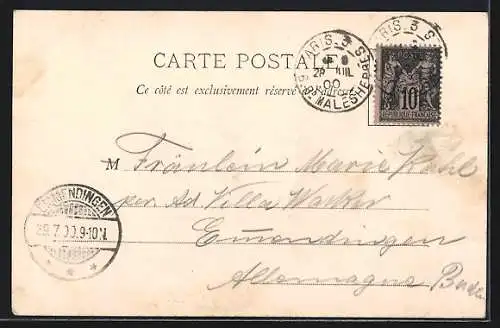 CARTE POSTALE
Ce côté est exclusivement réservé à l'adresse
PARIS_3
28 JUIL
00
Bd MALESHERBES
PARIS_3
10
RÉPUBLIQUE FRANÇAISE
M Fräulein Marie Kohl
per Ad Villa Wacker
Emmendingen
Allemagne Baden
EMMENDINGEN
29.7.00.9-10V.